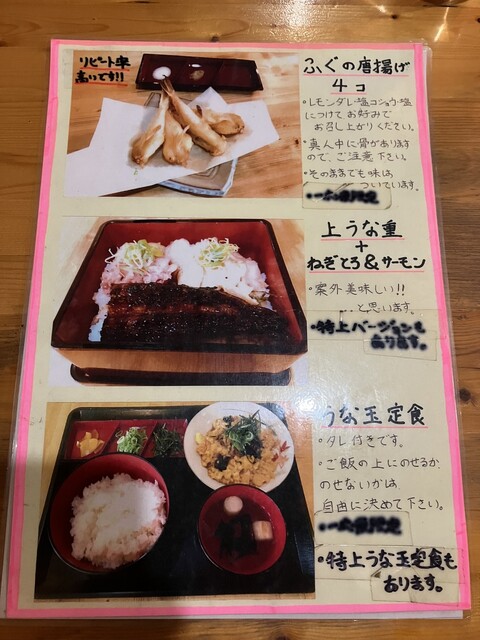 リピート率
高いです!!
ふぐの唐揚げ
4コ
・レモンダレ・塩コショウ・塩
につけてお好みで
お召し上がりください。
・真ん中に骨があります
ので、ご注意下さい。
・そのままでも味は
ついています。
上うな重
+
ねぎとろ&サーモン
・案外美味しい!!
…と思います。
・特上バージョンも
あります。
うな玉定食
・タレ付きです。
・ご飯の上にのせるか
のせないかは
自由に決めて下さい。
・特上うな玉定食も
あります。